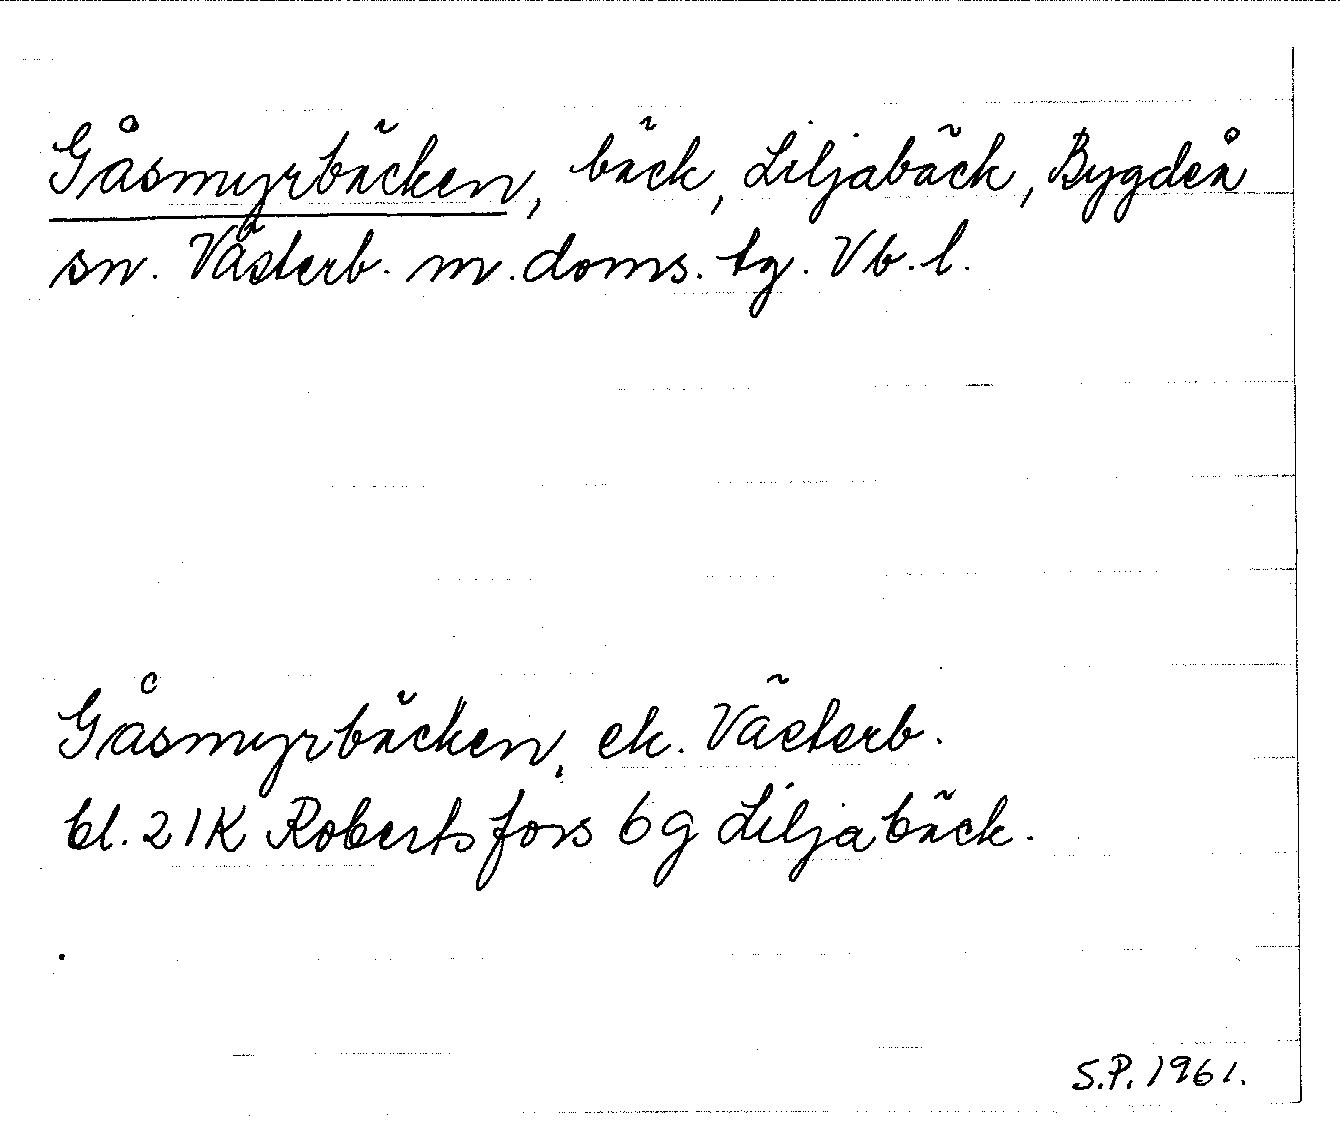 Gåsmyrbäcken, bäck, Liljabäck, Bygdeå
sn. Västerb. m. doms. tg. Vb. l.
Gåsmyrbäcken, ek. Västerb.
bl. 21K Robertsfors 6g Liljabäck.
S.P. 1961.